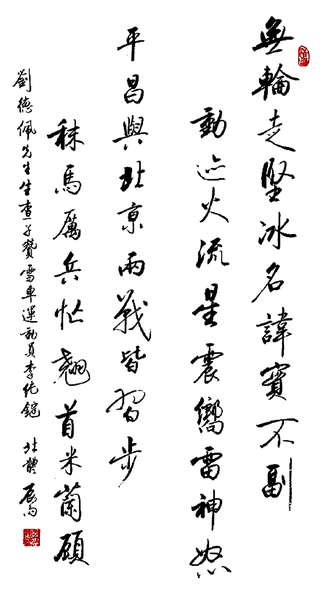 無輪走堅冰名諱實不副
動迹火流星震嚮雷神怒
平昌與北京兩戰皆習步
秣馬厲兵忙翹首米蘭顧
劉德佩先生生查子贊雪車運動員李純鍵 北體